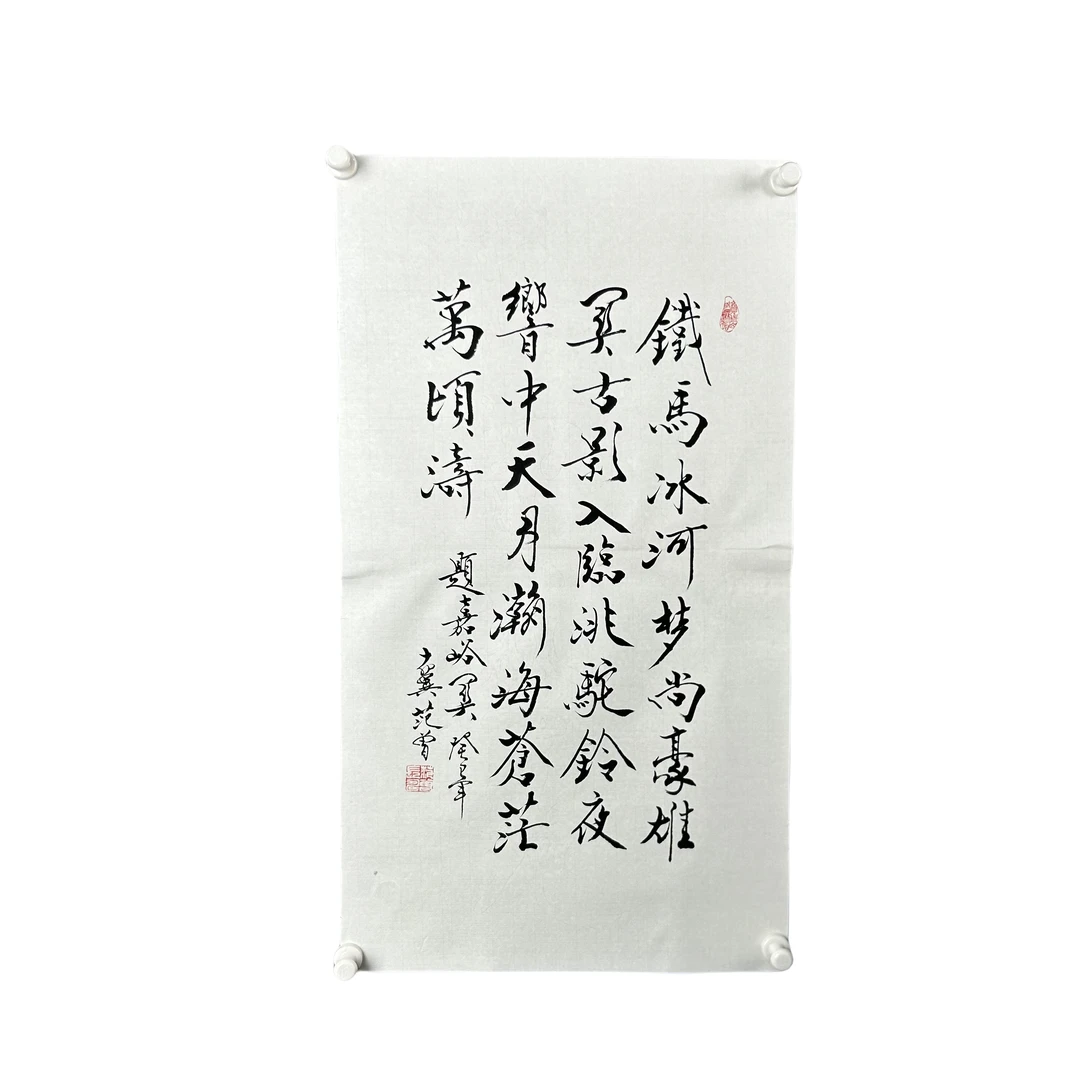 鐵馬冰河梦尚豪雄
関古影入臨洮駝鈴夜
響中天月瀚海蒼茫
萬頃濤
題嘉峪関癸巳年
十翼范曾